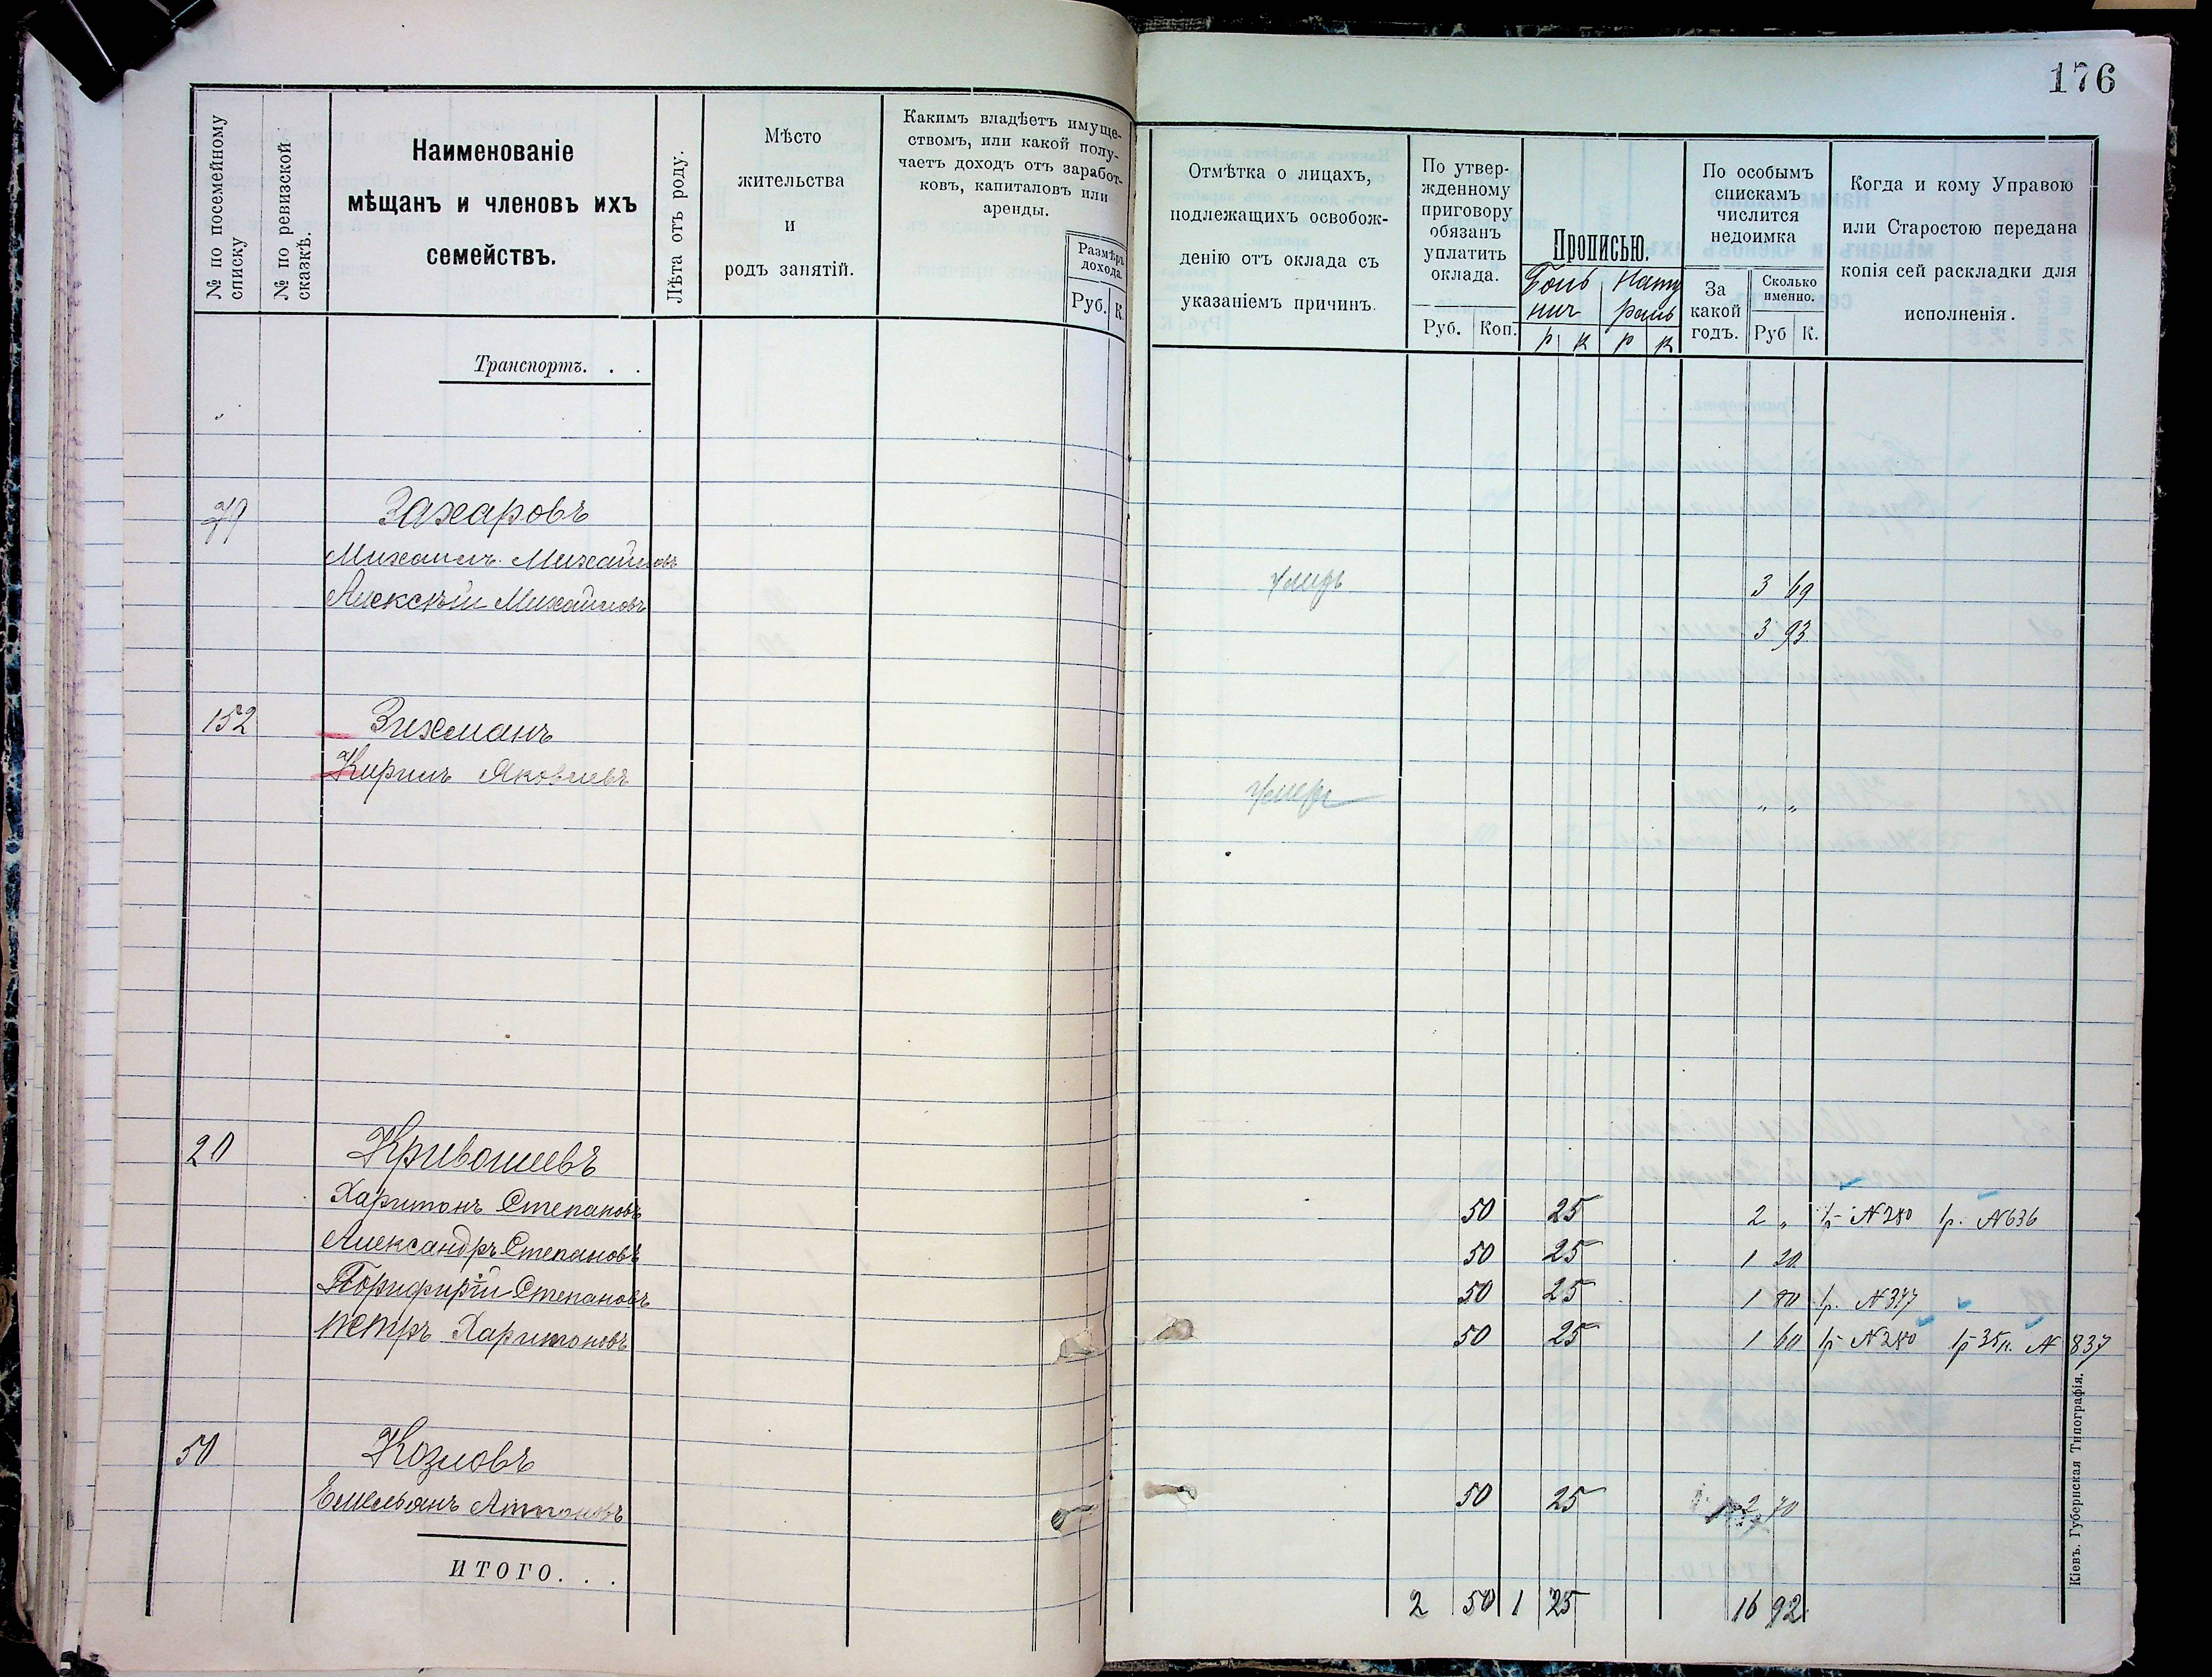 176
№ по посемейному списку
№ по ревизской сказкѣ.
Наименованіе
мѣщанъ и членовъ ихъ
семействъ.
Лѣта отъ роду.
Мѣсто
жительства
и
родъ занятій.
Какимъ владѣетъ имуще-
ствомъ, или какой полу-
чаетъ доходъ отъ заработ-
ковъ, капиталовъ или
аренды.
Размѣръ
дохода.
Руб. К.
Отмѣтка о лицахъ,
подлежащихъ освобож-
денію отъ оклада съ
указаніемъ причинъ.
По утвер-
жденному
приговору
обязанъ
уплатить
оклада.
Руб. Коп.
Прописью.
Боль Нату
нич раль
р к р к
По особымъ
спискамъ
числится
недоимка
За
какой
годъ.
Сколько
именно.
Руб К.
Когда и кому Управою
или Старостою передана
копія сей раскладки для
исполненія.
Транспортъ. . .
79 Захаровъ
Михаилъ Михайловъ умеръ 3 69
Алексѣй Михайловъ 3 93
152 Зихманъ
Кирилъ Яковлевъ умеръ " "
20 Кривошеевъ
Харитонъ Степановъ 50 25 2 " 1р N 280 1р. N 636
Александръ Степановъ 50 25 1 20
Порфирій Степановъ 50 25 1 80 1р. N 377
Петръ Харитоновъ 50 25 1 60 1р N 280 1р 35к. N 837
50 Козловъ
Емельянъ 50 25 2 70
ИТОГО. . .
2 50 1 25 16 92
Кіевъ. Губернская Типографія.